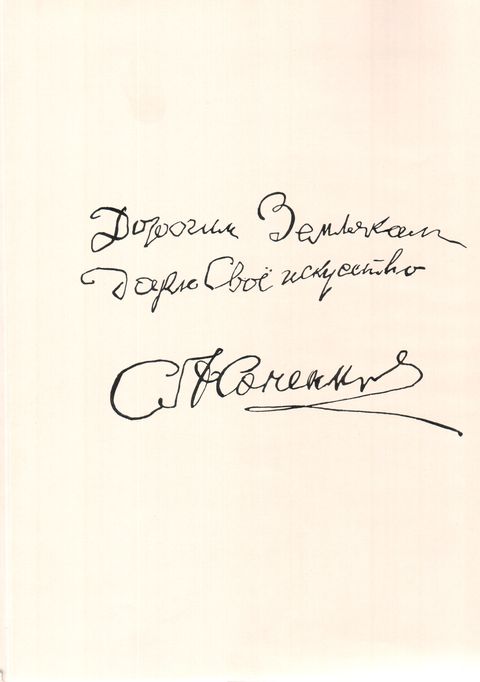 Дорогим Землякам
Дарю Своё искусство
С Т Коненков